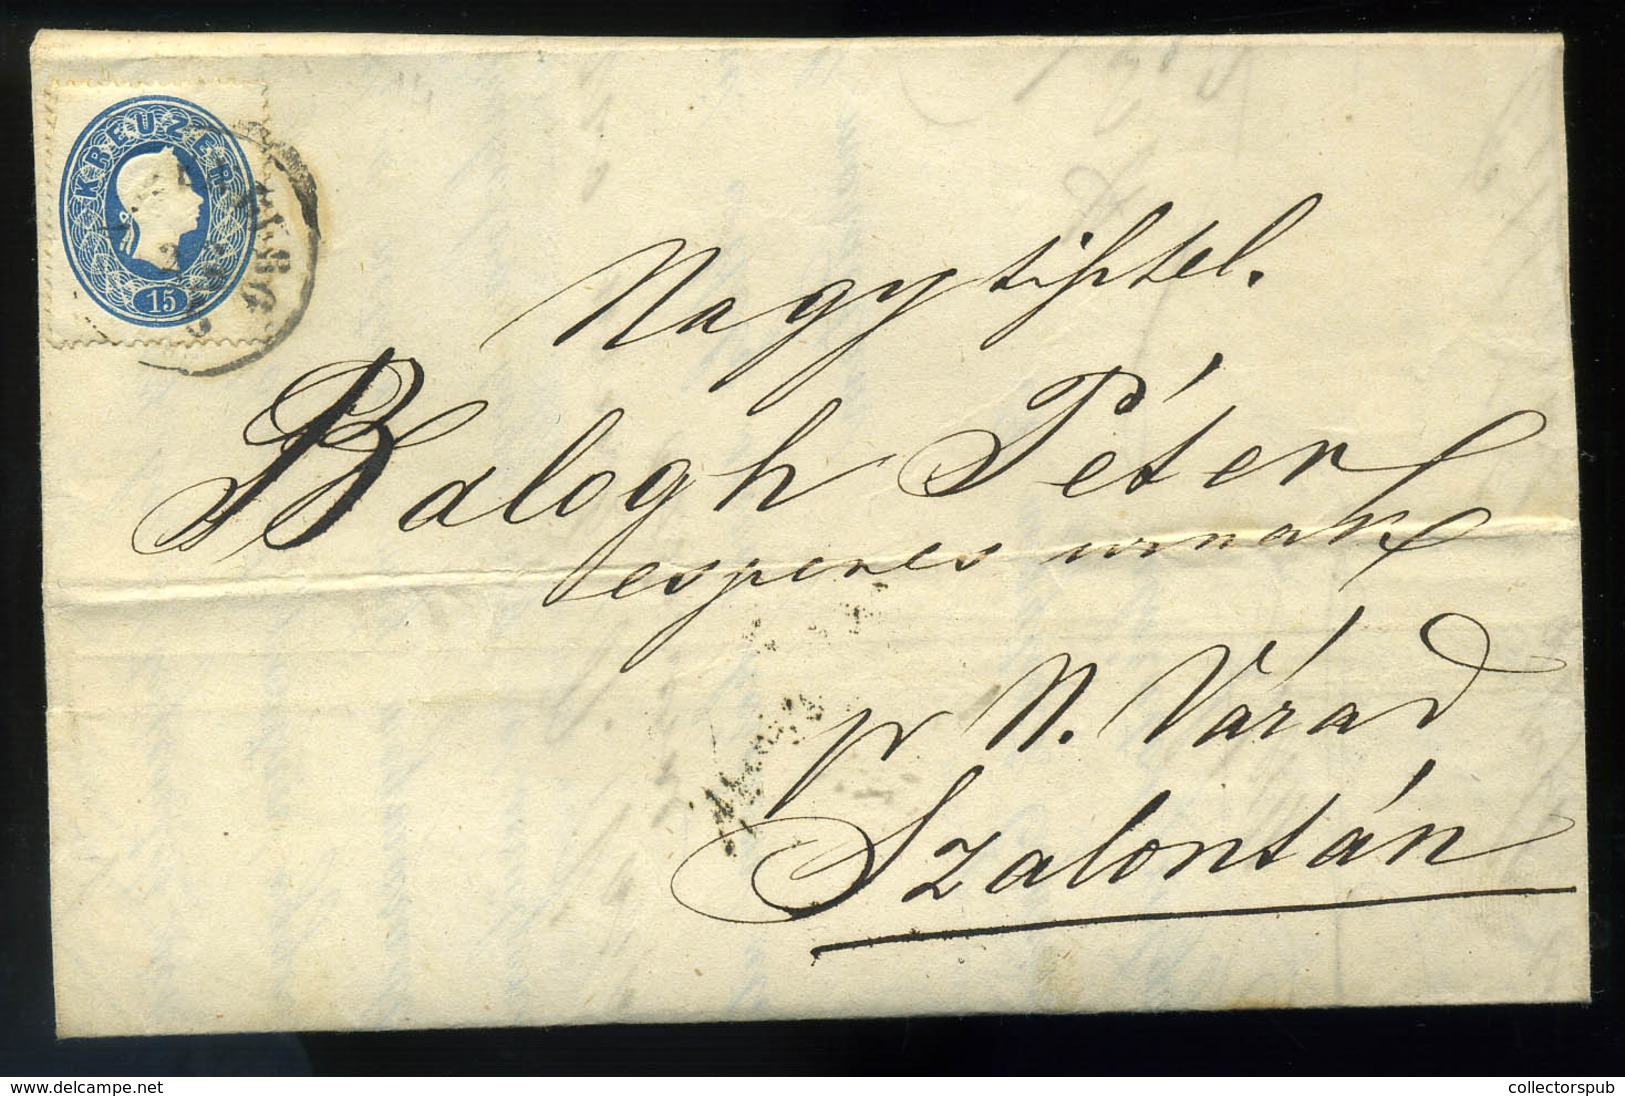 KREUZER
15
Nagytisztel.
Balogh Péter
esperes urnak
pr N. Várad
Szalontán
www.delcampe.net
collectorspub